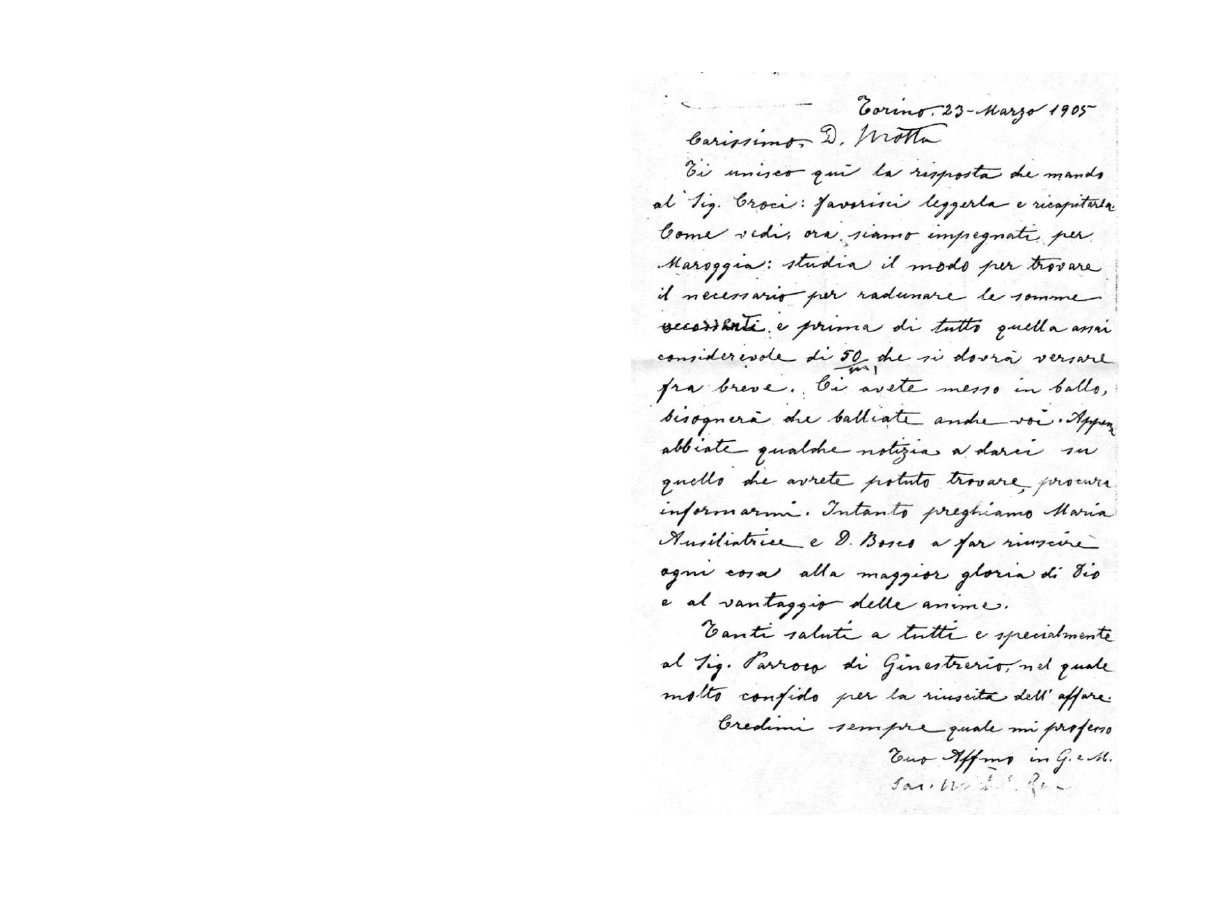 Torino, 23-Marzo 1905
Carissimo D. Motta
Ti unisco qui la risposta che mando
al Sig. Croci: favorisci leggerla e ricapitarla
Come vedi, ora siamo impegnati per
Maroggia: studia il modo per trovare
il necessario per radunare le somme
occorrenti e prima di tutto quella assai
considerevole di 50/m che si dovrà versare
fra breve. Ci avete messo in ballo,
bisognerà che balliate anche voi. Appena
abbiate qualche notizia a darci su
quello che avrete potuto trovare, procura
informarmi. Intanto preghiamo Maria
Ausiliatrice e D. Bosco a far riuscire
ogni cosa alla maggior gloria di Dio
e al vantaggio delle anime.
Tanti saluti a tutti e specialmente
al Sig. Parroco di Ginestrerio, nel quale
molto confido per la riuscita dell'affare.
Credimi sempre quale mi professo
Tuo Affmo in G. e M.
Sac.